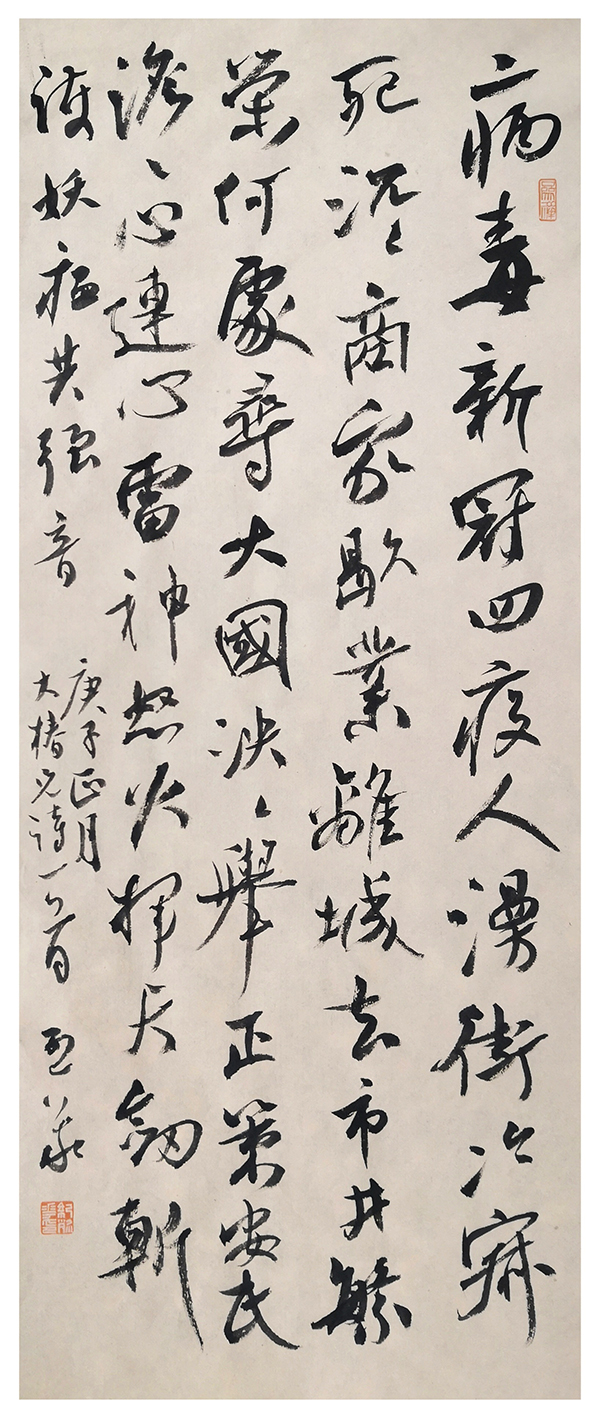 病毒新冠四疫人漫街冷寂
死沉〻商家歇業離城去市井繁
榮何處尋大國泱〻舉正策安民
澹〻心連心雷神怒火揮天劍斬
妖瘟共強音
庚子正月
大椿兄詩一首